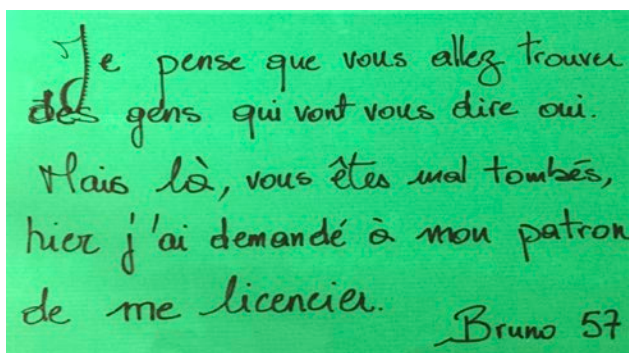 Je pense que vous allez trouver
des gens qui vont vous dire oui.
Mais là, vous êtes mal tombés,
hier j'ai demandé à mon patron
de me licencier.
Bruno 57